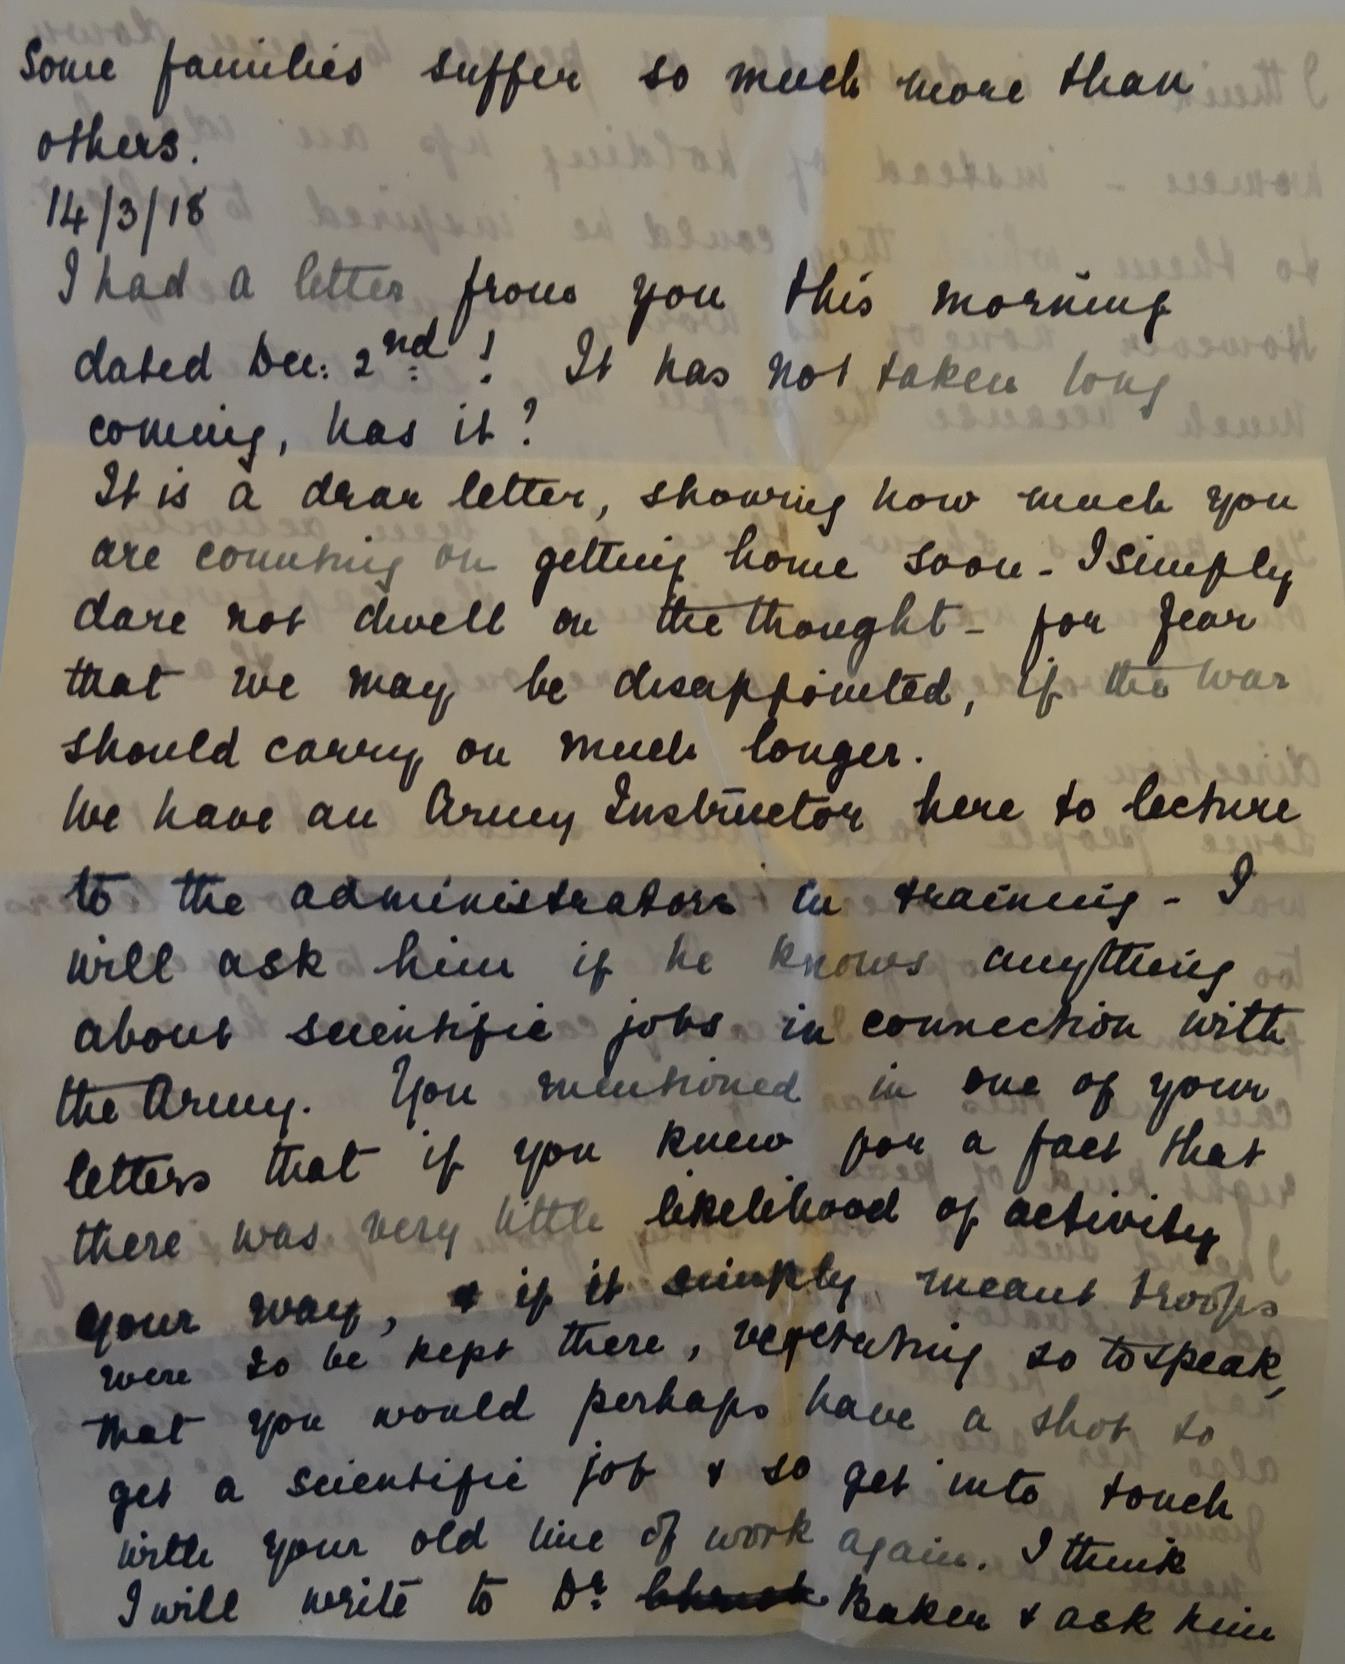 Some families suffer so much more than
others.
14/3/18
I had a letter from you this morning
dated Dec: 2nd! It has not taken long
coming, has it?
It is a dear letter, showing how much you
are counting on getting home soon - I simply
dare not dwell on the thought - for fear
that we may be disappointed, if the war
should carry on much longer.
We have an Army Instructor here to lecture
to the administrators in training - I
will ask him if he knows anything
about scientific jobs in connection with
the Army. You mentioned in one of your
letters that if you knew for a fact that
there was very little likelihood of activity
your way, & if it simply meant troops
were to be kept there, vegetating so to speak,
that you would perhaps have a shot to
get a scientific job & so get into touch
with your old line of work again. I think
I will write to Dr. Baker & ask him